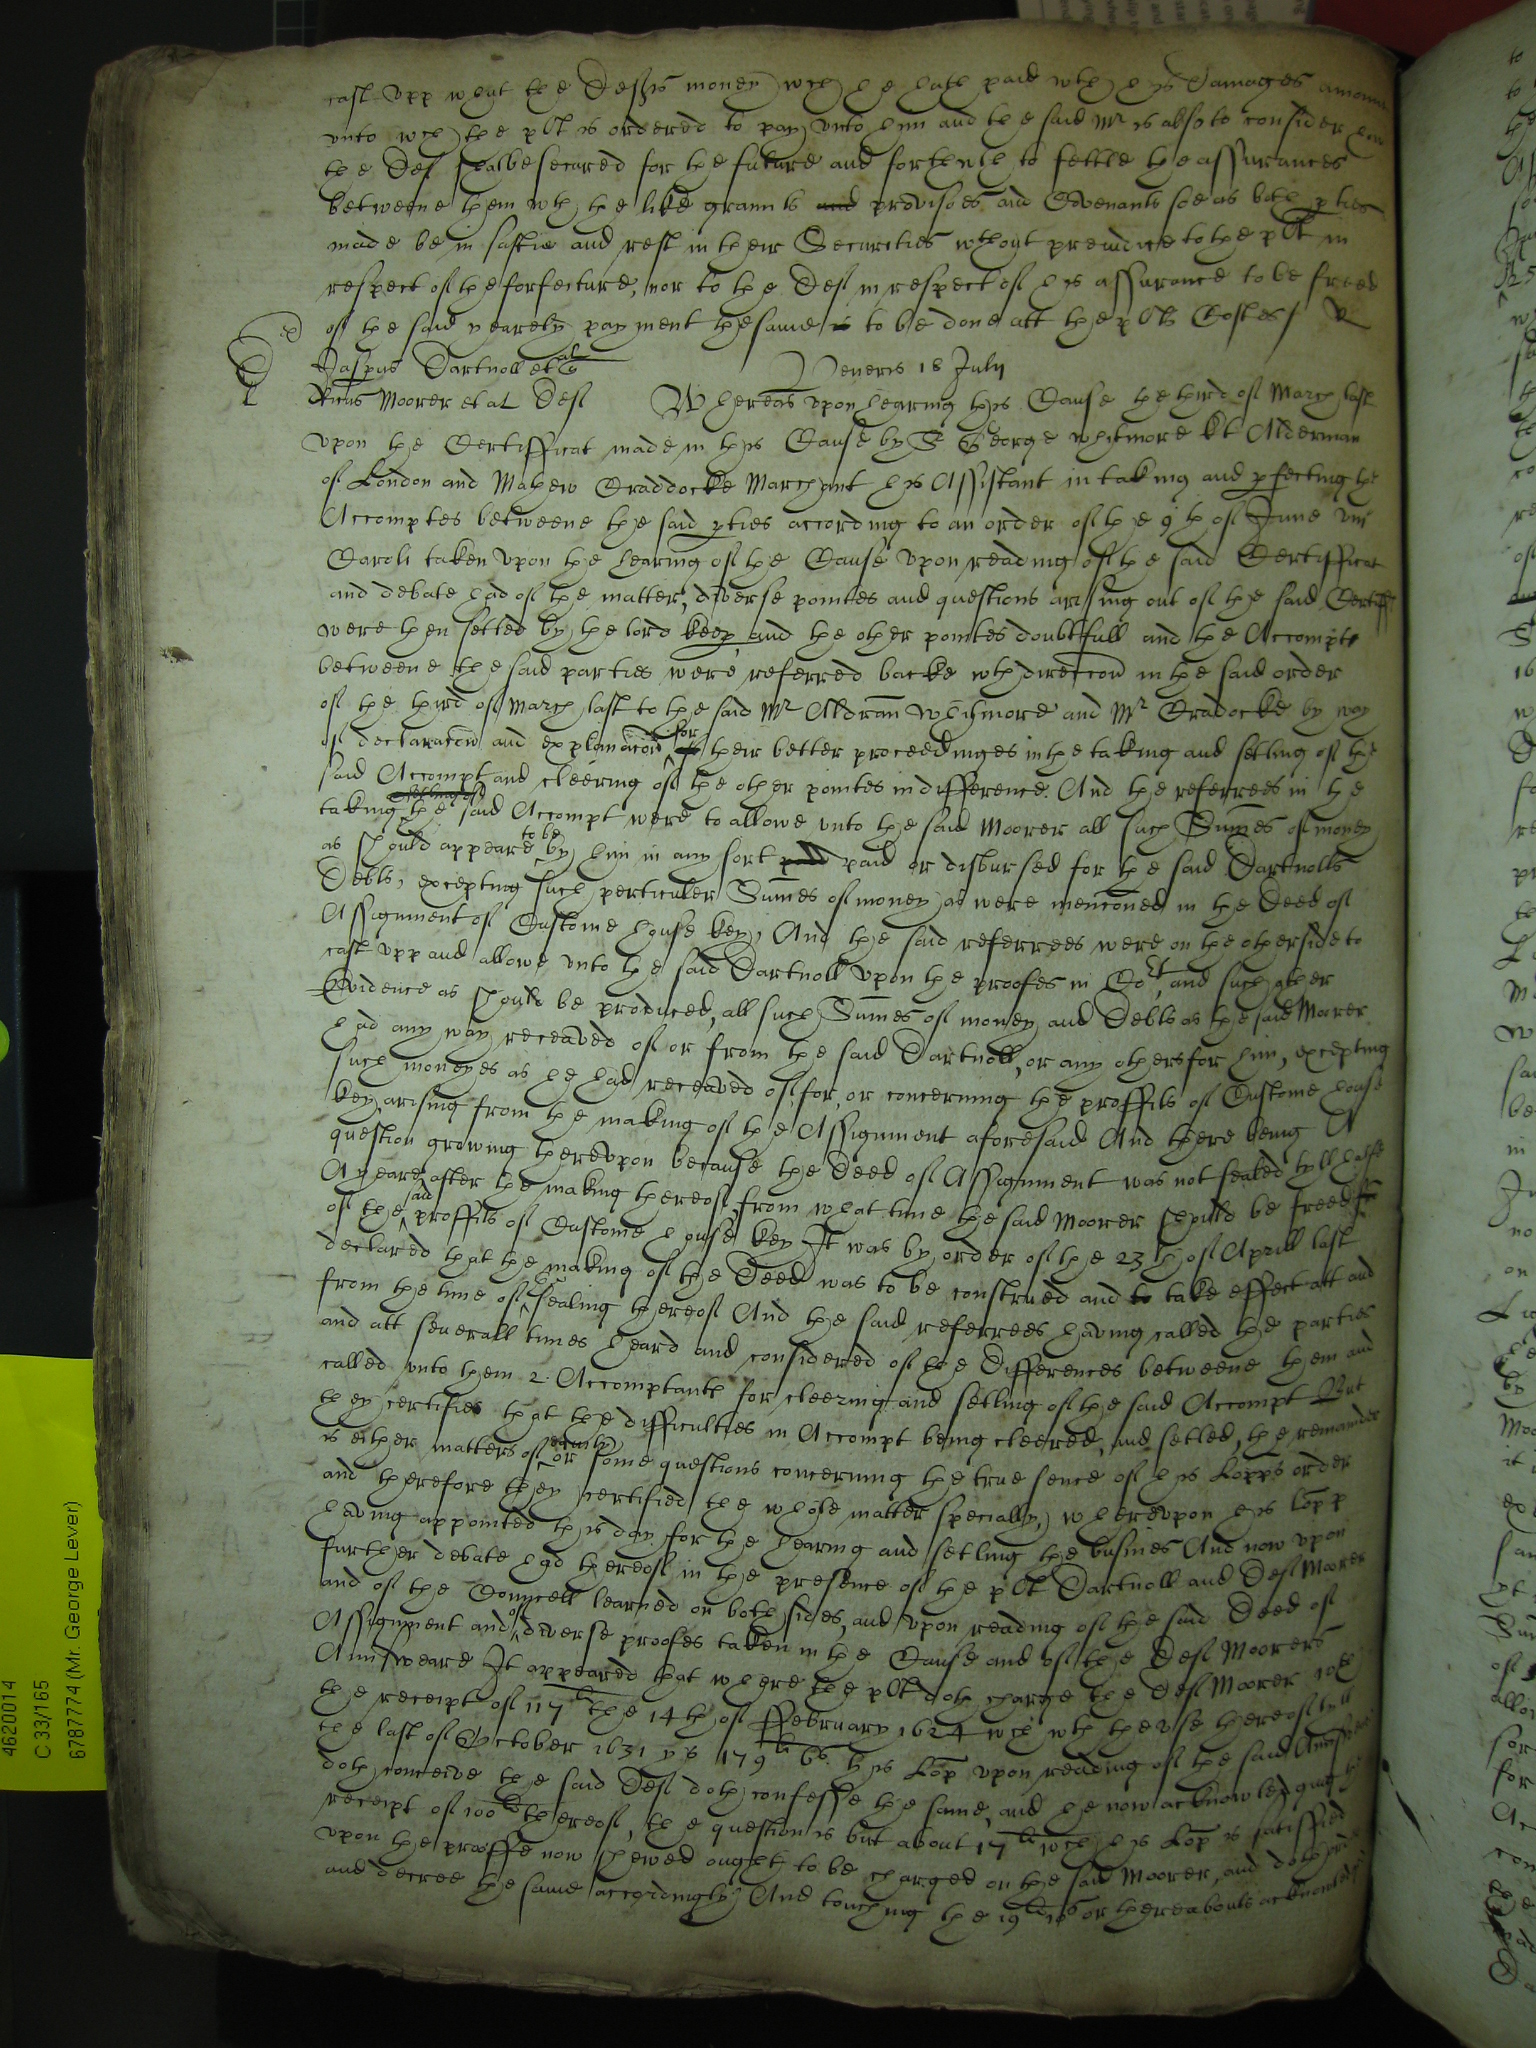 cast upp what the Defts money wch he hath paid wth his damages amount
unto wch the plt is ordered to pay unto him and the said Mr is also to consider how
the Def shalbe secured for the future and forthwth to settle the assurances
betweene them wth the like graunts and provisoes and Covenants soe as both pties
made be in sastie and rest in their Securities wthout preiudice to the plt in
respect of the forfeiture, nor to the Def in respect of his assurance to be freed
of the said yearely payment the same is to be done att the plts Costes /
Jaspus Dartnoll et al Veneris 18 Julij
Ricus Moorer et al Def Whereas upon hearing this Cause the third of March last
upon the Certifficat made in this Cause by Sr George Whitmore kt Alderman
of London and Mathew Craddocke Marchant his Assistant in taking and pfecting the
Accomptes betweene the said pties according to an order of the 9th of June viii
Caroli taken upon the hearing of the Cause upon reading of the said Certifficat
and debate had of the matter, diverse pointes and questions arising out of the said Certiff
were then setled by the lord keep and the other pointes doubtfull and the Accompte
betweene the said parties were referred backe wth direccon in the said order
of the third of March last to the said Mr Aldran Whitmore and Mr Cradocke by way
of declaracon and explanacon for their better proceedinges in the taking and setling of the
said Accompt and cleering of the other pointes in difference. And the referrees in the
taking the said Accompt were to allowe unto the said Moorer all such Sumes of money
as should appeare to be by him in any sort paid paid or disbursed for the said Dartnolls
Debts, excepting such perticuler Sumes of money as were menconed in the Deed of
Assignment of Custome house key, And the said referrees were on the other side to
cast upp and allowe unto the said Dartnoll upon the proofes in Cort, and such other
Evidence as should be produced, all such Sumes of money and Debts as the said Moorer
had any way receaved of or from the said Dartnoll, or any others for him, excepting
such moneyes as he had receaved of, for, or concerning the proffits of Custome house
key, arising from the making of the Assignment aforesaid And there being A
question growing thereupon because the Deed of Assignment was not sealed tyll halfe
A yeare after the making thereof, from what time the said Moorer should be freed
of the said proffits of Custome house key It was by order of the 23th of Aprill last
declared that the making of the Deed was to be construed and to take effect att and
from the time of the sealing thereof And the said referrees having called the parties
and att severall times heard and considered of the Differences betweene them and
called unto them 2 Accomptants for cleering and setling of the said Accompt But
they certifie that the difficulties in Accompt being cleered, and setled, the remainder
is either matters of equity or some questions concerning the true sence of his Lopps order
and therefore they certified the whole matter specially, whereupon his Lopp
having appointed this day for the hearing and setling the busines And now upon
further debate had thereof in the presence of the plt Dartnoll and Def Moorer
and of the Councell learned on both sides, and upon reading of the said Deed of
Assignment and of diverse proofes taken in the Cause and of the Def Moorers
Aunsweare It appeared that where the plt doth charge the Def Moorer wth
the receipt of 117li the 14th of ffebruary 1624 wch wth the use thereof tyll
the last of October 1631 ys 179li 6s his Lop upon reading of the said Aunsweare
doth conceive the said Def doth confesse the same, and he now acknowledging the
receipt of 100li thereof, the question is but about 17li wch his Lop is satisfied
upon the prooffe now shewed ought to be charged on the said Moorer, and doth ord
and decree the same accordingly And touching the 19li 10s or thereabouts acknowledg
4620014
C 33/165
6787774 (Mr. George Lever)